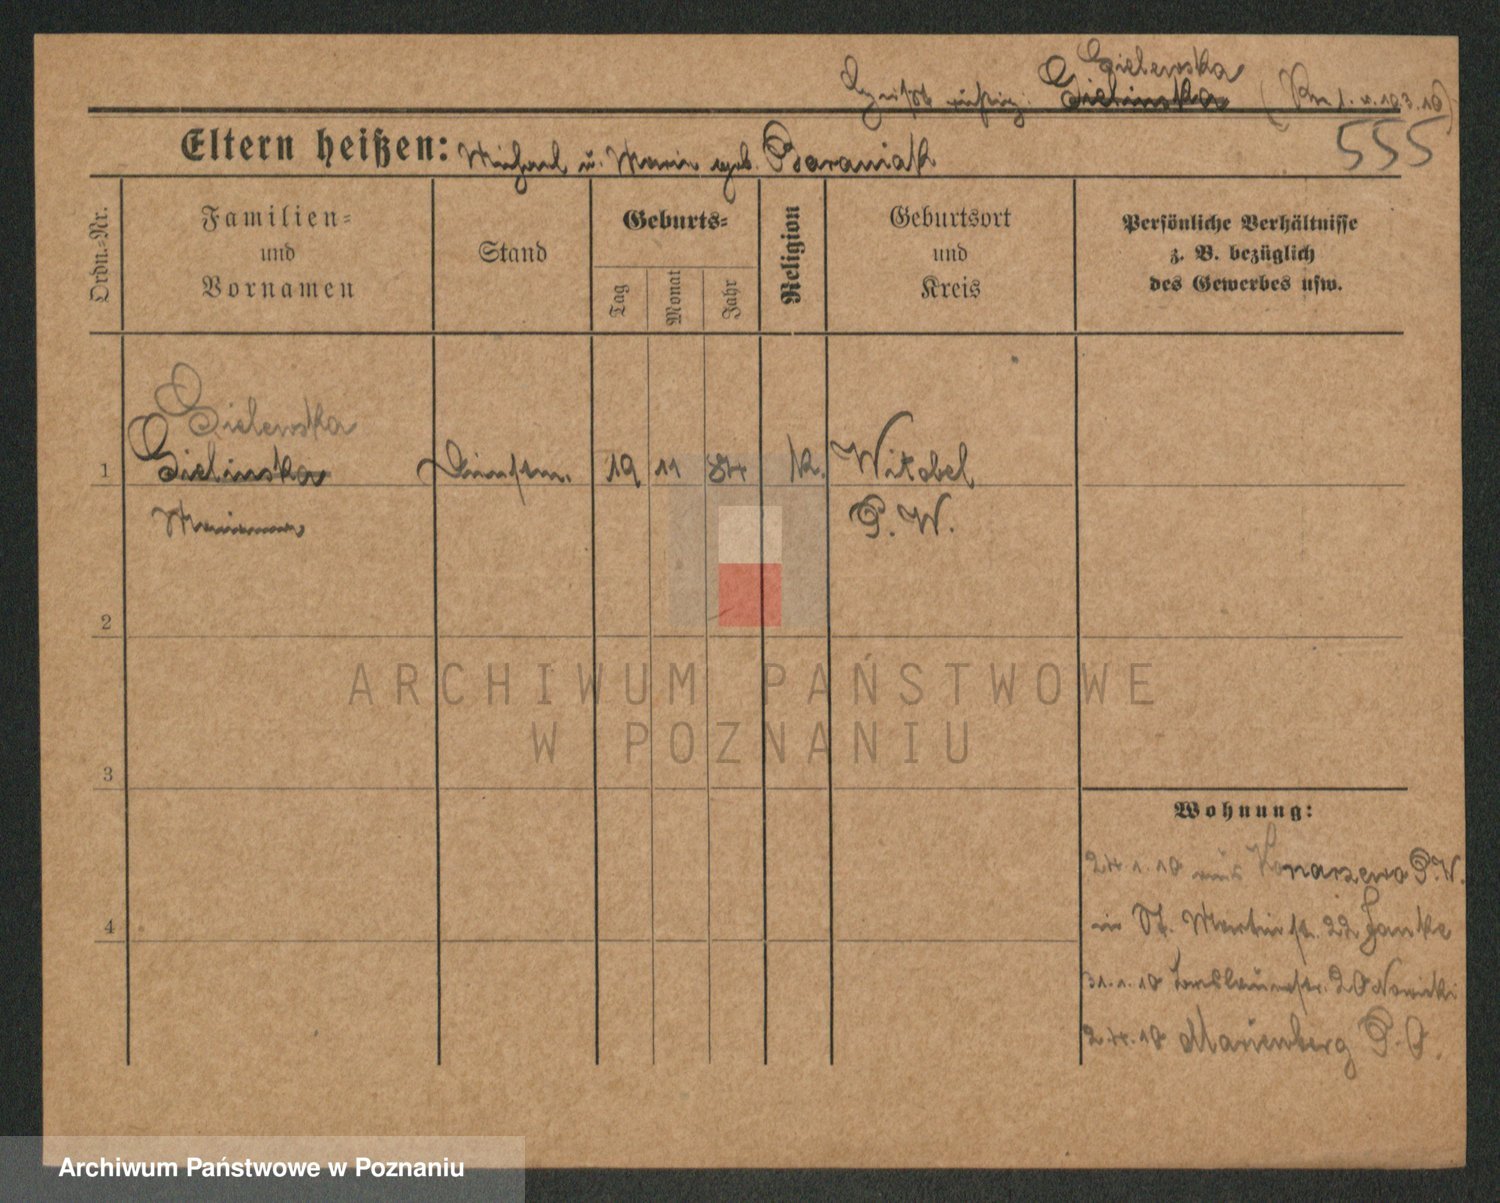 heißt richtig: Gielewska
Gielinska (Vm 1. v. 19.3.10)
555
Eltern heißen: Michael u. Marie geb. Baraniak
Ordn.=Nr.
Familien=
und
Vornamen
Stand
Geburts=
Tag
Monat
Jahr
Religion
Geburtsort
und
Kreis
Persönliche Verhältnisse
z. B. bezüglich
des Gewerbes usw.
Gielewska
1 Gielinska Dienstm. 19 11 84 K. Wirobel
Marianna P. W.
2
3
4
Wohnung:
24.1.10 aus Konarzewo P. W.
in St. Martinstr. 22 Janke
31.1.10 20 Nowicki
2.4.10 Marienberg P. O.
ARCHIWUM PAŃSTWOWE
W POZNANIU
Archiwum Państwowe w Poznaniu